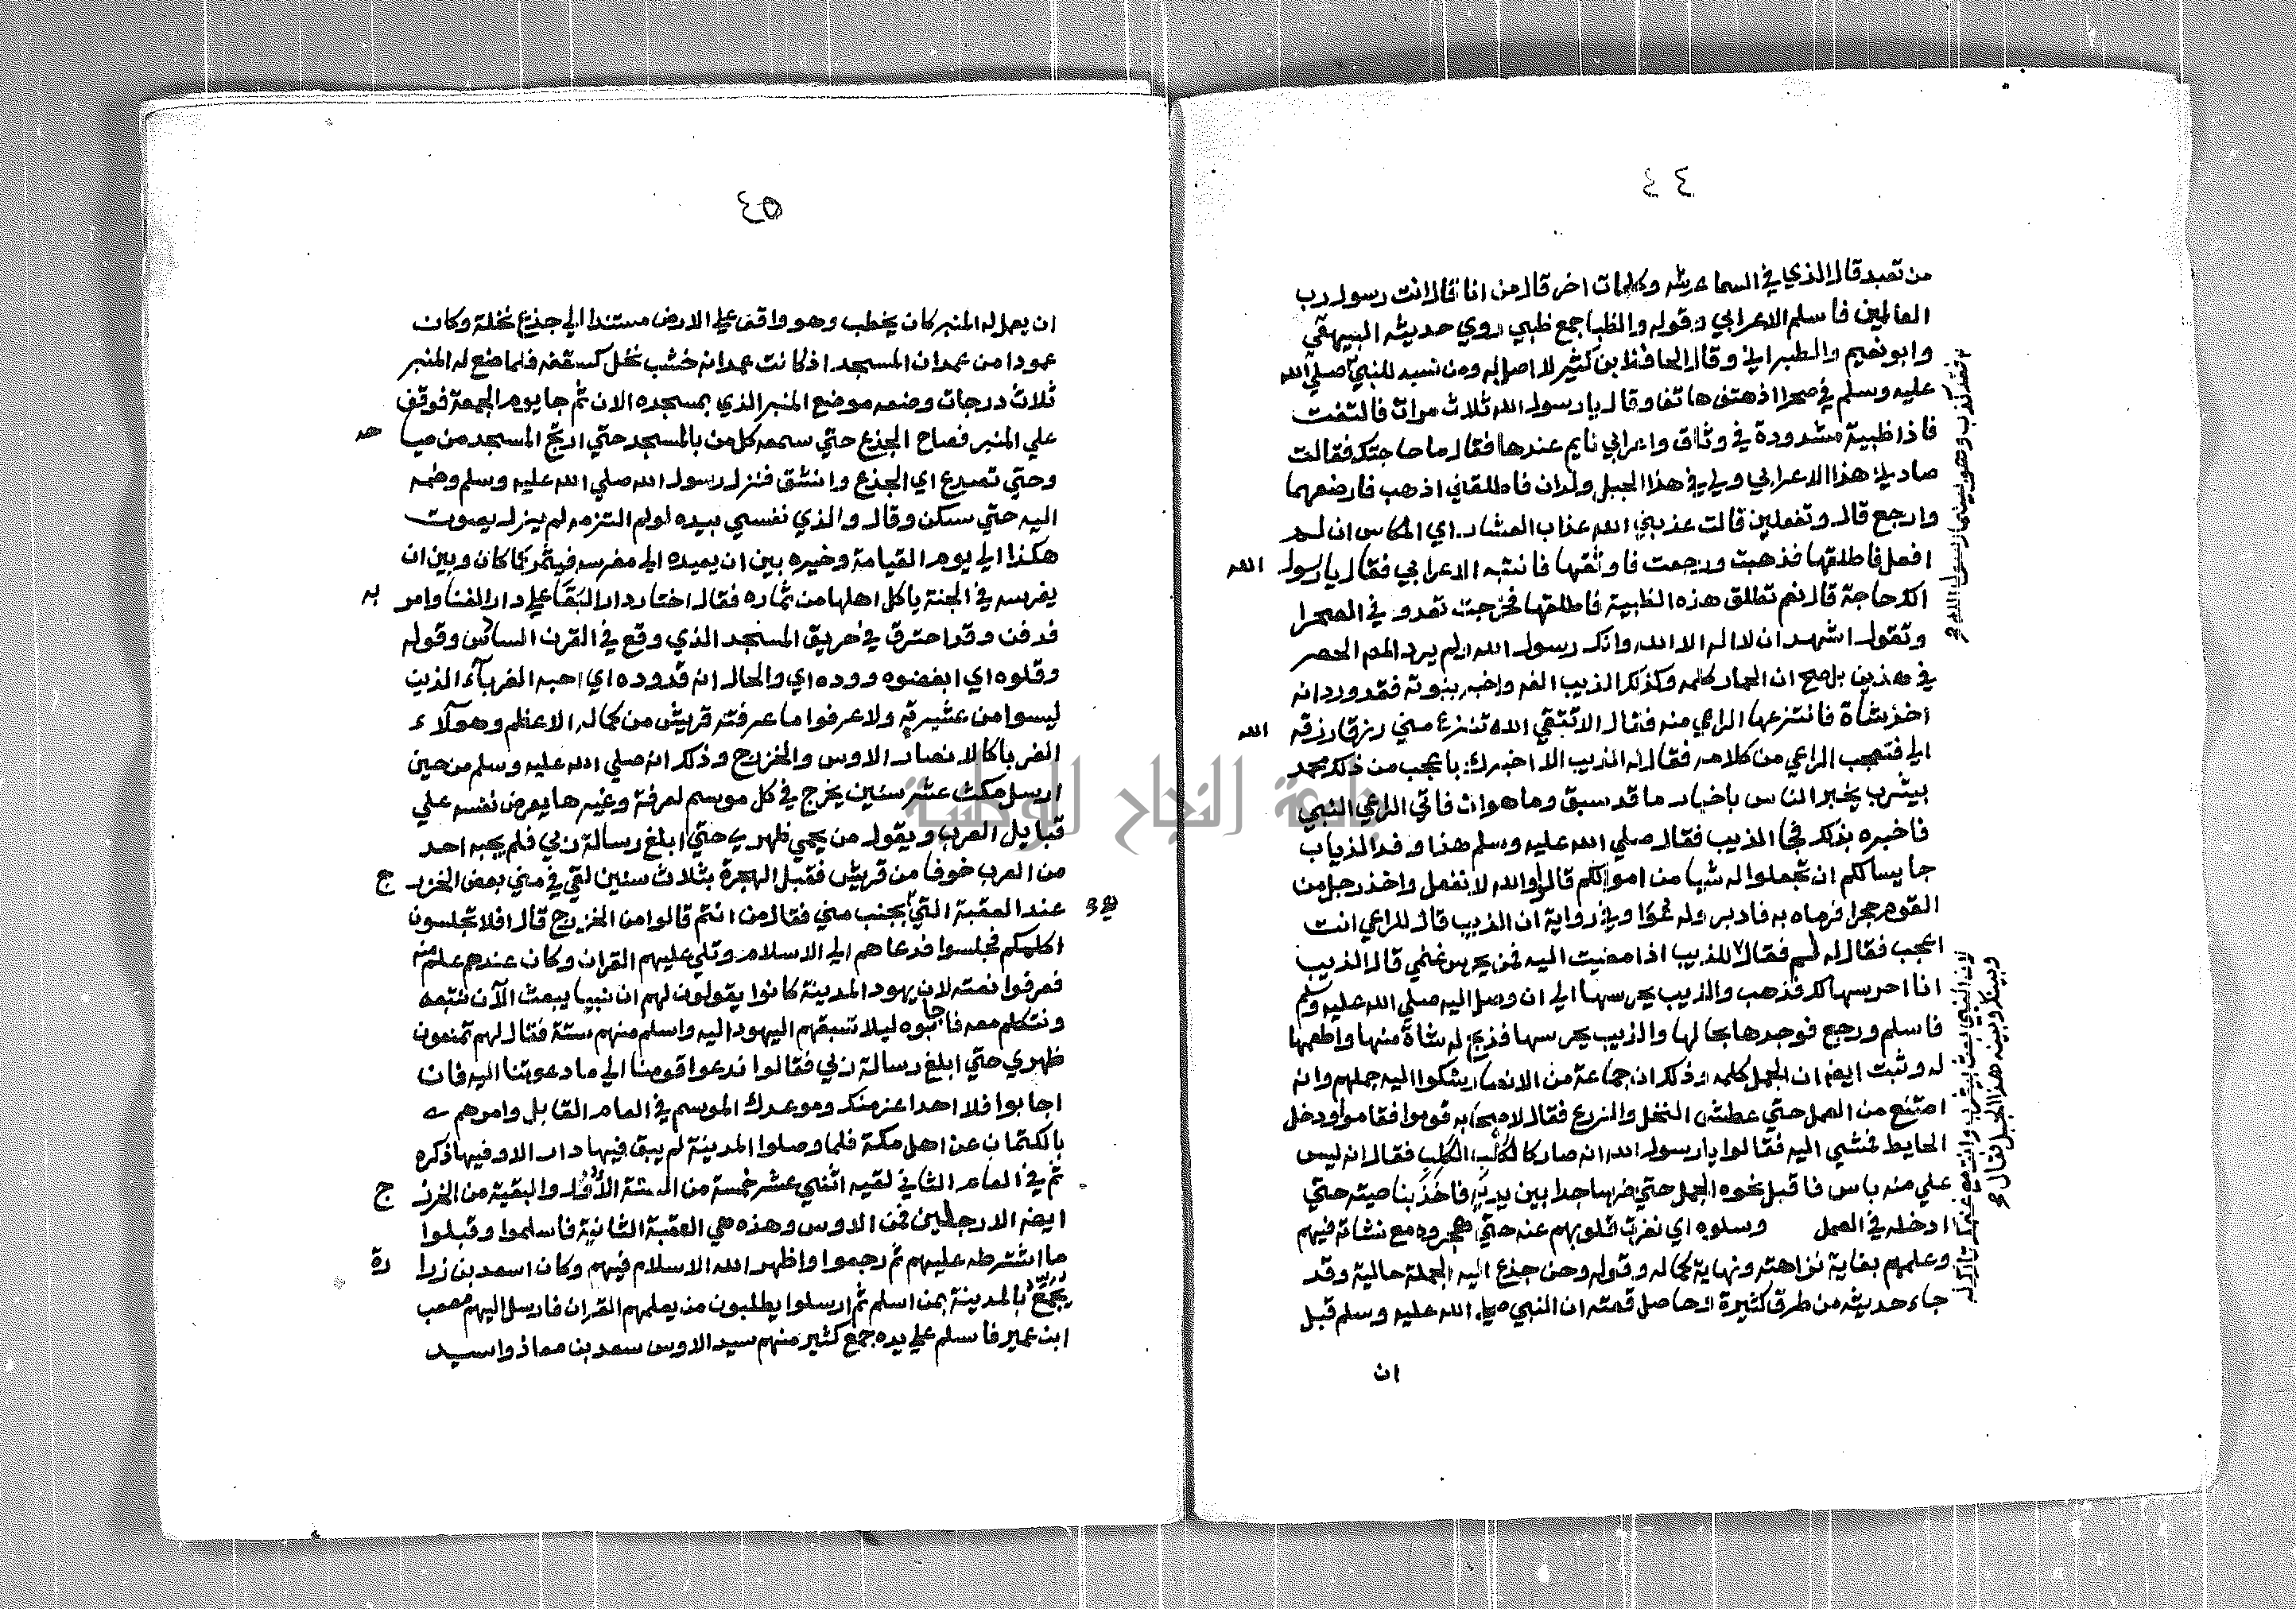 ٤٤
من تعبد قال الذي في السما عرشه وكلمات اخر قال من انا قال انت رسول رب
العالمين فاسلم الاعرابي وقوله والظبا جمع ظبي روي حديثه البيهقي
وابو نعيم والطبراني وقال الحافظ بن كثير لا اصل له ومن نسبه للنبي صلي الله
عليه وسلم في صحرا اذ هتف هاتف وقال يا رسول الله ثلاث مرات فالتفت
فاذا ظبية مشدودة في وثاق واعرابي نايم عندها فقال ما حاجتك فقالت
صادني هذا الاعرابي ولي في هذا الجبل ولدان فاطلقني اذهب فارضعهما
وارجع قال وتفعلين قالت عذبني الله عذاب العشار اي المكاس ان لم
افعل فاطلقها فذهبت ورجعت فاوثقها فانتبه الاعرابي فقال يا رسول الله
الك حاجة قال نعم تطلق هذه الظبية فاطلقها فخرجت تعدو في الصحرا
وتقول اشهد ان لا اله الا الله وانك رسول الله ولم يرد المص الحصر
في هذين بل صح ان الحمار كلمه وكذلك الذيب الفه واخبر بنبوته فقد ورد انه
اخذ شاة فانتزعها الراعي منه فقال الا تتقي الله تنزع مني رزقا رزقه الله
الي فتعجب الراعي من كلامه فقال له الذيب الا اخبرك باعجب من ذلك محمد
بيثرب يخبر الناس باخبار ما قد سبق وما هوات فاتي الراعي النبي
فاخبره بذلك فجا الذيب فقال صلي الله عليه وسلم هذا وفد الذياب
جا يسالكم ان تجعلوا له شيا من اموالكم قالوا والله لا نفعل واخذ رجل من
القوم حجرا فرماه به فادبر وله عوا وفي رواية ان الذيب قال للراعي انت
اعجب فقال له لم فقال للذيب اذا مضيت اليه فمن يحرس غنمي قال الذيب
انا احرسها لك فذهب والذيب يحرسها الي ان وصل اليه صلي الله عليه وسلم
فاسلم ورجع فوجدها بحالها والذيب يحرسها فذبح له شاة منها واطعمها
له وثبت ايضا ان الجمل كلمه وذلك ان جماعة من الانصار شكوا اليه جملهم وانه
امتنع من العمل حتي عطش النخل والزرع فقال لاصحابه قوموا فقاموا ودخل
الحايط فمشي اليه فقالوا يا رسول الله انه صار كالكلب الكلب فقال انه ليس
علي منه باس فاقبل نحوه الجمل حتي خر ساجدا بين يديه فاخذ بناصيته حتي
ادخله في العمل وسلوه اي نفرت قلوبهم عنه حتي هجروه مع نشاته فيهم
وعلمهم بغاية نزاهته ونهاية كماله وقوله وحن جذع اليه الجملة حالية وقد
جاء حديثه من طرق كثيرة وحاصل قصته ان النبي صلي الله عليه وسلم قبل
ان
فقد كذب وهو بينما رسول الله
لان النبي بعث بيثرب وانت مع غنمك تارك له
وبينك وبينه هذا الجبل فقال
٤٥
ان يعمل له المنبر كان يخطب وهو واقف علي الارض مستندا الي جذع نخلة وكان
عمودا من عمدان المسجد اذ كانت عمدانه خشب نخل كسقفه فلما صنع له المنبر
ثلاث درجات وضعه موضع المنبر الذي بمسجده الان ثم جا يوم الجمعة فوقف
علي المنبر فصاح الجذع حتي سمعه كل من بالمسجد حتي ارتج المسجد من صيا حه
وحتي تصدع اي الجذع وانشق فنزل رسول الله صلي الله عليه وسلم وضمه
اليه حتي سكن وقال والذي نفسي بيده لو لم التزمه لم يزل يصوت
هكذا الي يوم القيامة وخيره بين ان يعيده الي مغرسه فيثمر كما كان وبين ان
يغرسه في الجنة ياكل اهلها من ثماره فقال اختار دار البقا علي دار الفنا وامر به
فدفن وقد احترق في حريق المسجد الذي وقع في القرن السادس وقوله
وقلوه اي ابغضوه ووده اي والحال انه قد وده اي احبه الغرباء الذين
ليسوا من عشيرته ولا عرفوا ما عرفته قريش من كماله الاعظم وهولاء
الغربا كالانصار الاوس والخزرج وذلك انه صلي الله عليه وسلم من حين
ارسل مكث عشر سنين يخرج في كل موسم لعرفة وغيرها يعرض نفسه علي
قبايل العرب ويقول من يحمي ظهري حتي ابلغ رسالة ربي فلم يجبه احد
من العرب خوفا من قريش فقبل الهجرة بثلاث سنين لقي في مني بعض الخزر ج
عند العقبة التي بجنب مني فقال من انتم قالوا من الخزرج قال افلا تجلسون
اكلمكم فجلسوا فدعاهم الي الاسلام وتلي عليهم القران وكان عندهم علم منه
فعرفوا نعته لان يهود المدينة كانوا يقولون لهم ان نبيا يبعث الآن نتبعه
ونتكلم معه فاجابوه ليلا تسبقهم اليهود اليه واسلم منهم ستة فقال لهم تمنعون
ظهري حتي ابلغ رسالة ربي فقالوا ندعوا قومنا الي ما دعوتنا اليه فان
اجابوا فلا احد اعز منك وموعدك الموسم في العام القابل وامرهم
بالكتمان عن اهل مكة فلما وصلوا المدينة لم يبق فيها دار الا وفيها ذكره
ثم في العام الثاني لقيه اثني عشر خمسة من الستة الاول والبقية من الخزر ج
ايضا الا رجلين فمن الاوس وهذه هي العقبة الثانية فاسلموا وقبلوا
ما اشترطه عليهم ثم رجعوا واظهر الله الاسلام فيهم وكان اسعد بن زرا رة
يجمع بالمدينة بمن اسلم ثم ارسلوا يطلبون من يعلمهم القران فارسل اليهم مصعب
ابن عمير فاسلم علي يده جمع كثير منهم سيد الاوس سعد بن معاذ واسيد
جامعة النجاح الوطنية